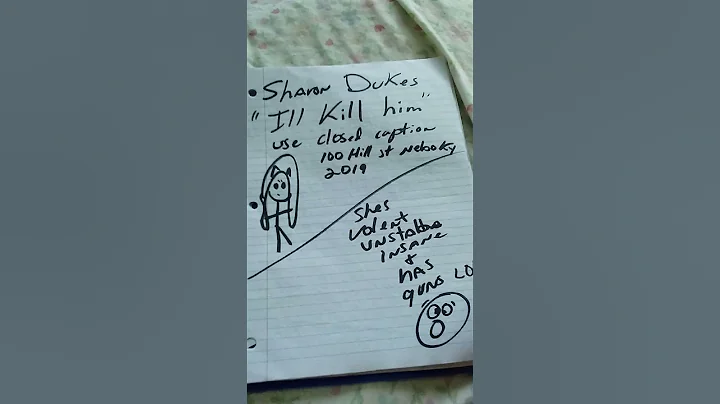 Sharon Dukes
"I'll Kill him"
use closed caption
100 Hill st Nebo Ky
2019
shes
volent
unstable
insane
+
has
guns LO